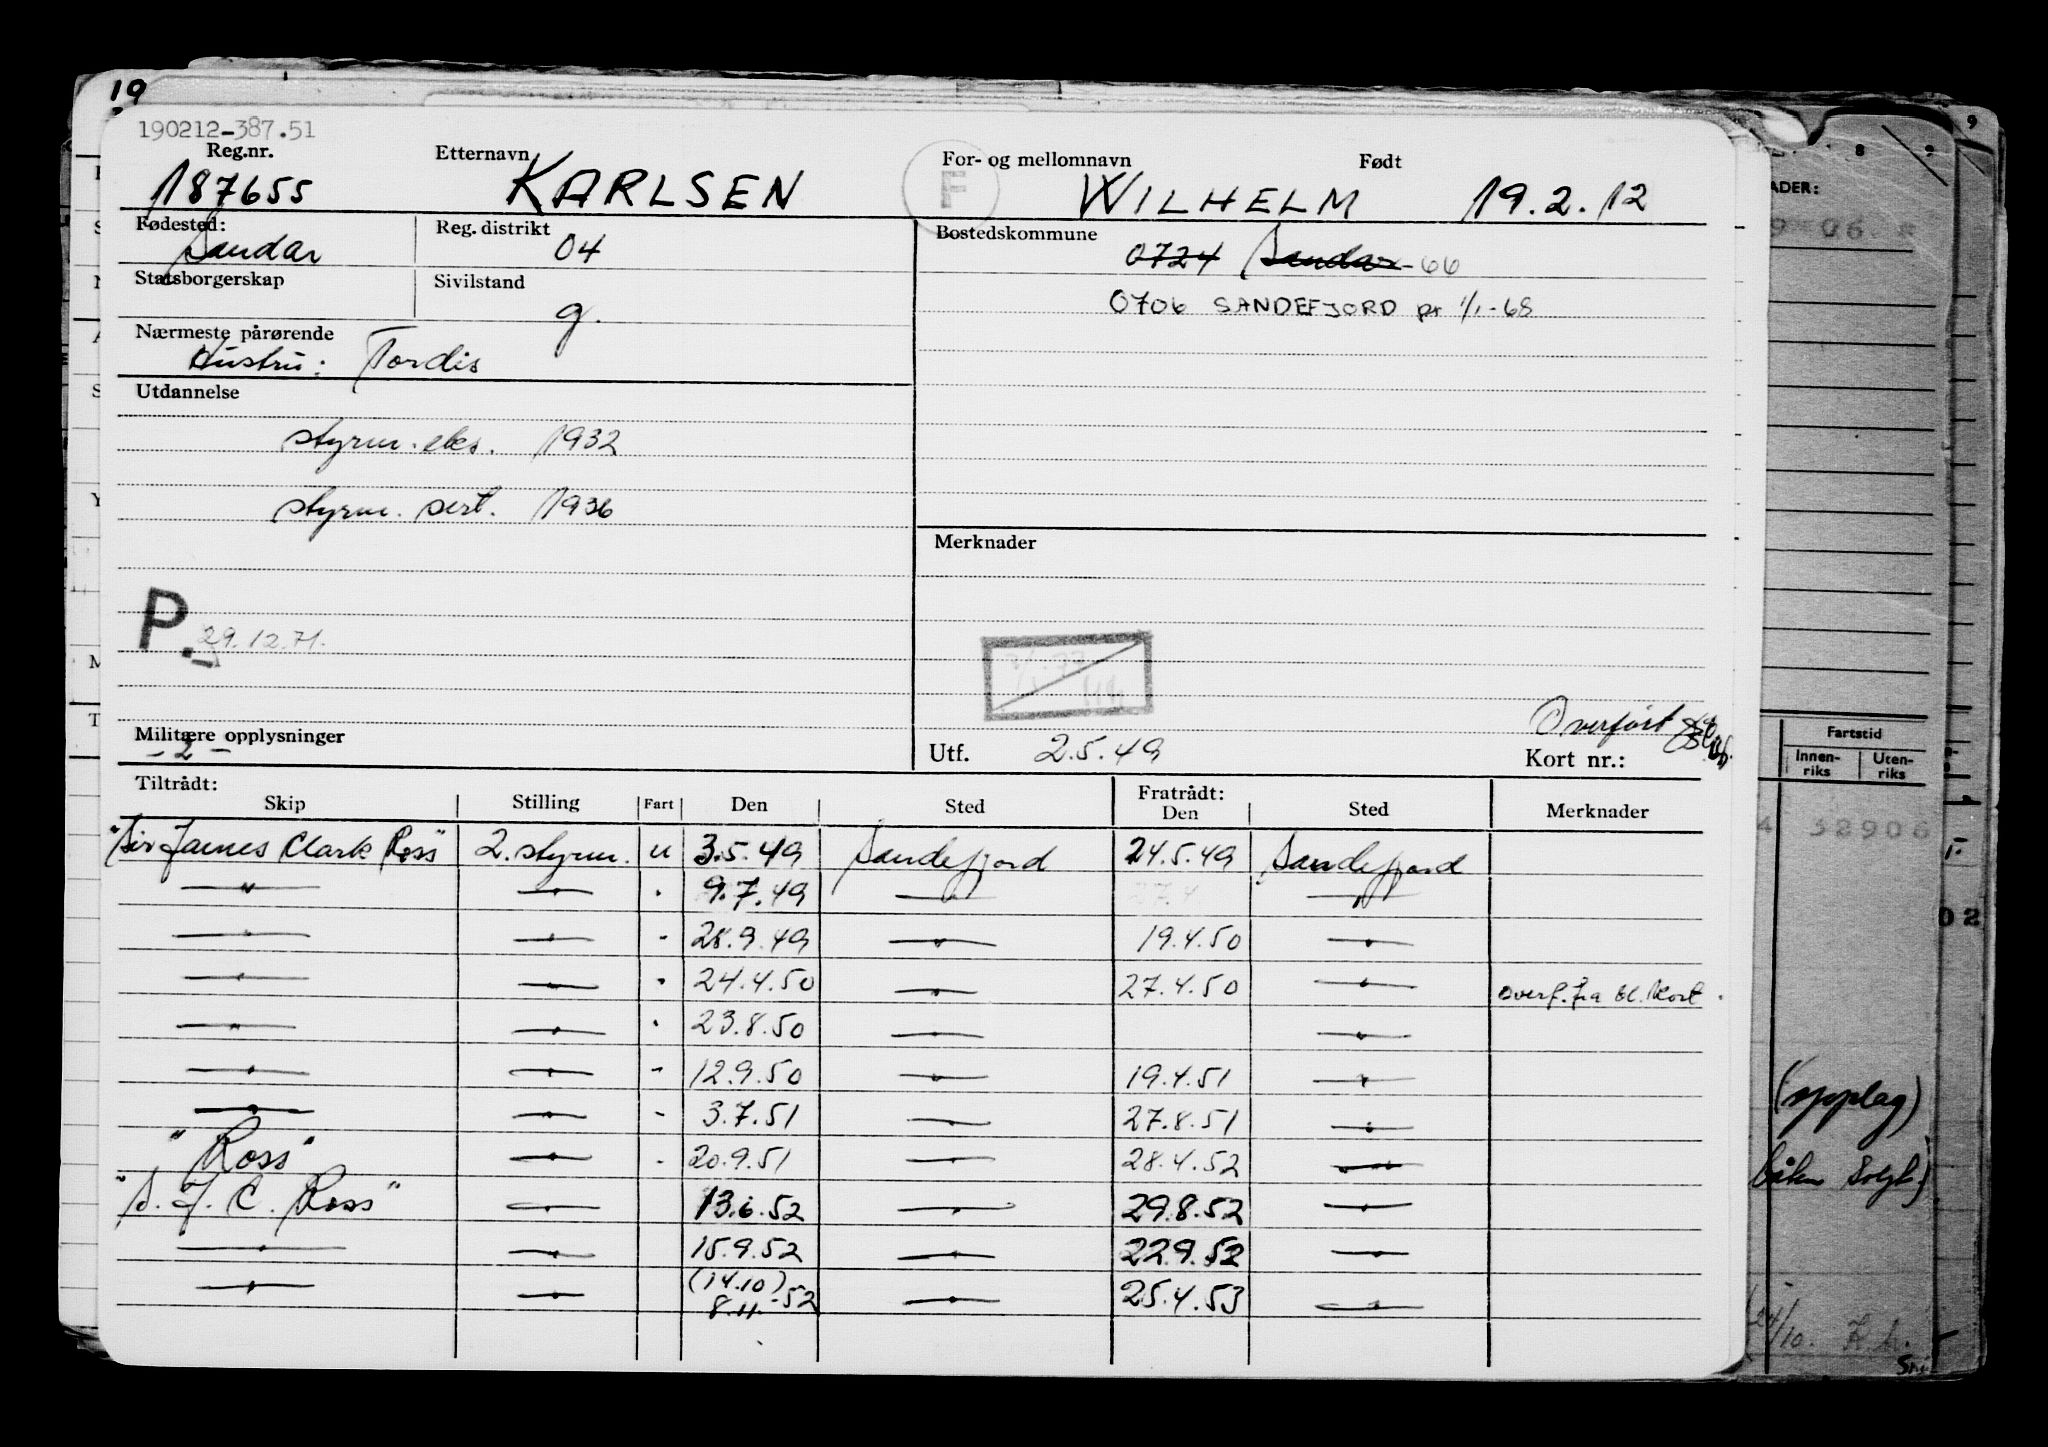 19
190212-387.51
Reg.nr. Etternavn F For- og mellomnavn Født
187655 KARLSEN WILHELM 19.2.12
Fødested: Reg. distrikt Bostedskommune
Sandar 04 0724 Sandar - 66
Statsborgerskap Sivilstand
g. 0706 SANDEFJORD pr 1/1-68
Nærmeste pårørende
Hustru: Tordis
Utdannelse
styrm. eks. 1932
styrm. sert. 1936
Merknader
P.
29.12.71.
Overført
Militære opplysninger
- 2 -
Utf. 2.5.49 Kort nr.:
Tiltrådt: Fratrådt:
Skip Stilling Fart Den Sted Den Sted Merknader
"Sir James Clark Ross" 2. styrm. u 3.5.49 Sandefjord 24.5.49 Sandefjord
—"— —"— " 9.7.49 —"— 27.4 —"—
—"— —"— " 28.9.49 —"— 19.4.50 —"—
—"— —"— " 24.4.50 —"— 27.4.50 —"— overf. fra bl. kort
—"— —"— " 23.8.50 —"— —"—
—"— —"— " 12.9.50 —"— 19.4.51 —"—
—"— —"— " 3.7.51 —"— 27.8.51 —"—
"Ross" —"— " 20.9.51 —"— 28.4.52 —"—
"S. J. C. Ross" —"— 13.6.52 —"— 29.8.52 —"—
—"— —"— 15.9.52 —"— 22.9.52 —"—
—"— —"— (14.10) 8.11.-52 —"— 25.4.53 —"—
8 9
ADER:
9 06
Fartstid
Innen-riks Uten-riks
52906
02
(opplag)
24/10. K.h.